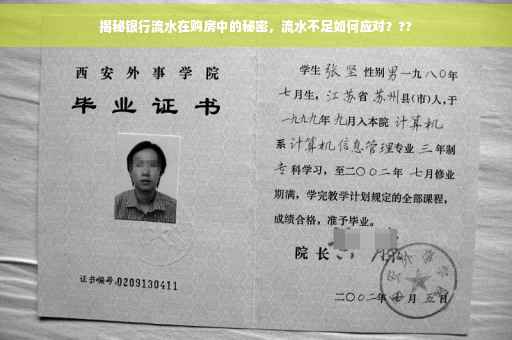 揭秘银行流水在购房中的秘密，流水不足如何应对？??
西安外事学院
毕业证书
证书编号:0209130411
学生 张坚 性别 男 一九八〇年
七月生，江苏省 苏州县(市)人,于
一九九九年 九月入本院 计算机
系 计算机信息管理专业 三 年制
专科学习，至二〇〇二年 七月修业
期满，学完教学计划规定的全部课程，
成绩合格，准予毕业。
院长
二〇〇二年 月 五日